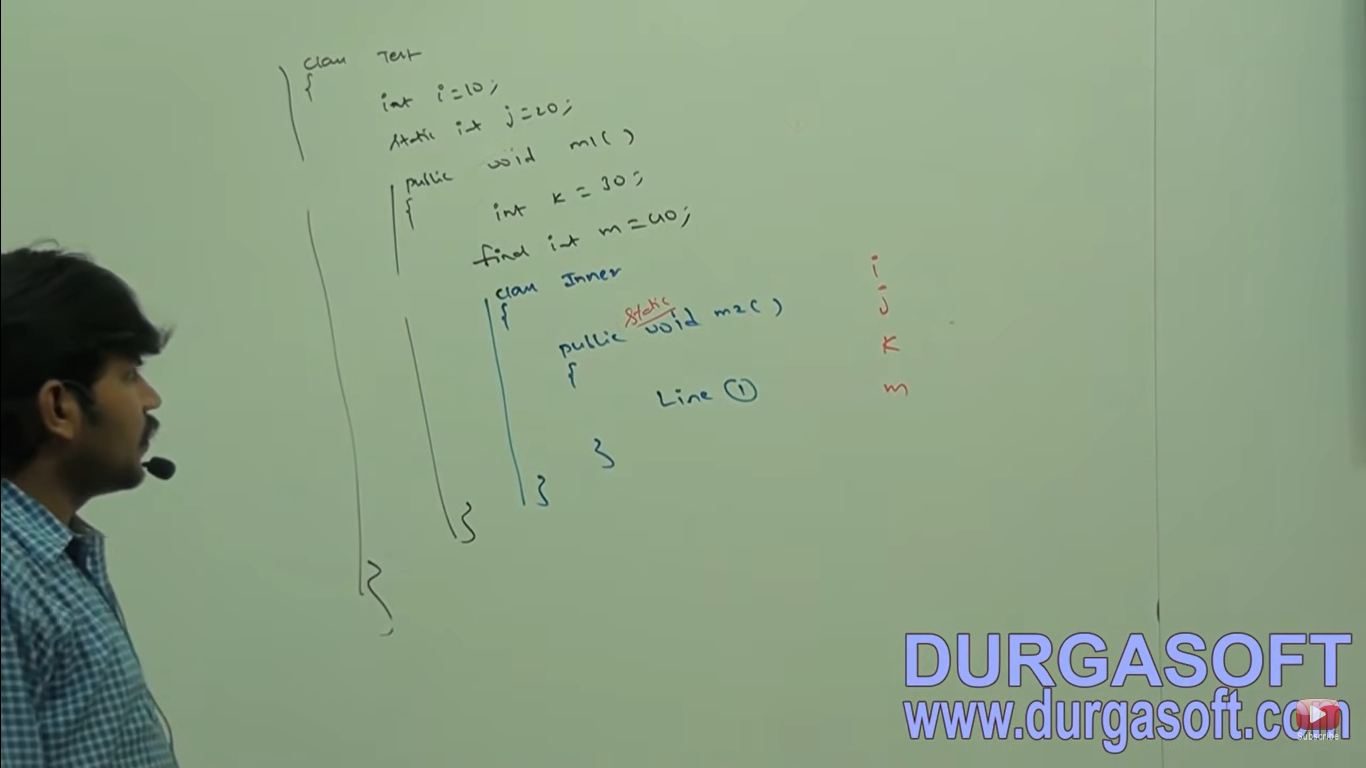 class Test
{
int i=10;
static int j=20;
public void m1( )
{
int k = 30;
final int m=40;
class Inner
{
public static void m2( )
{
Line ①
}
}
}
}
i
j
k
m
DURGASOFT
www.durgasoft.com
Subscribe